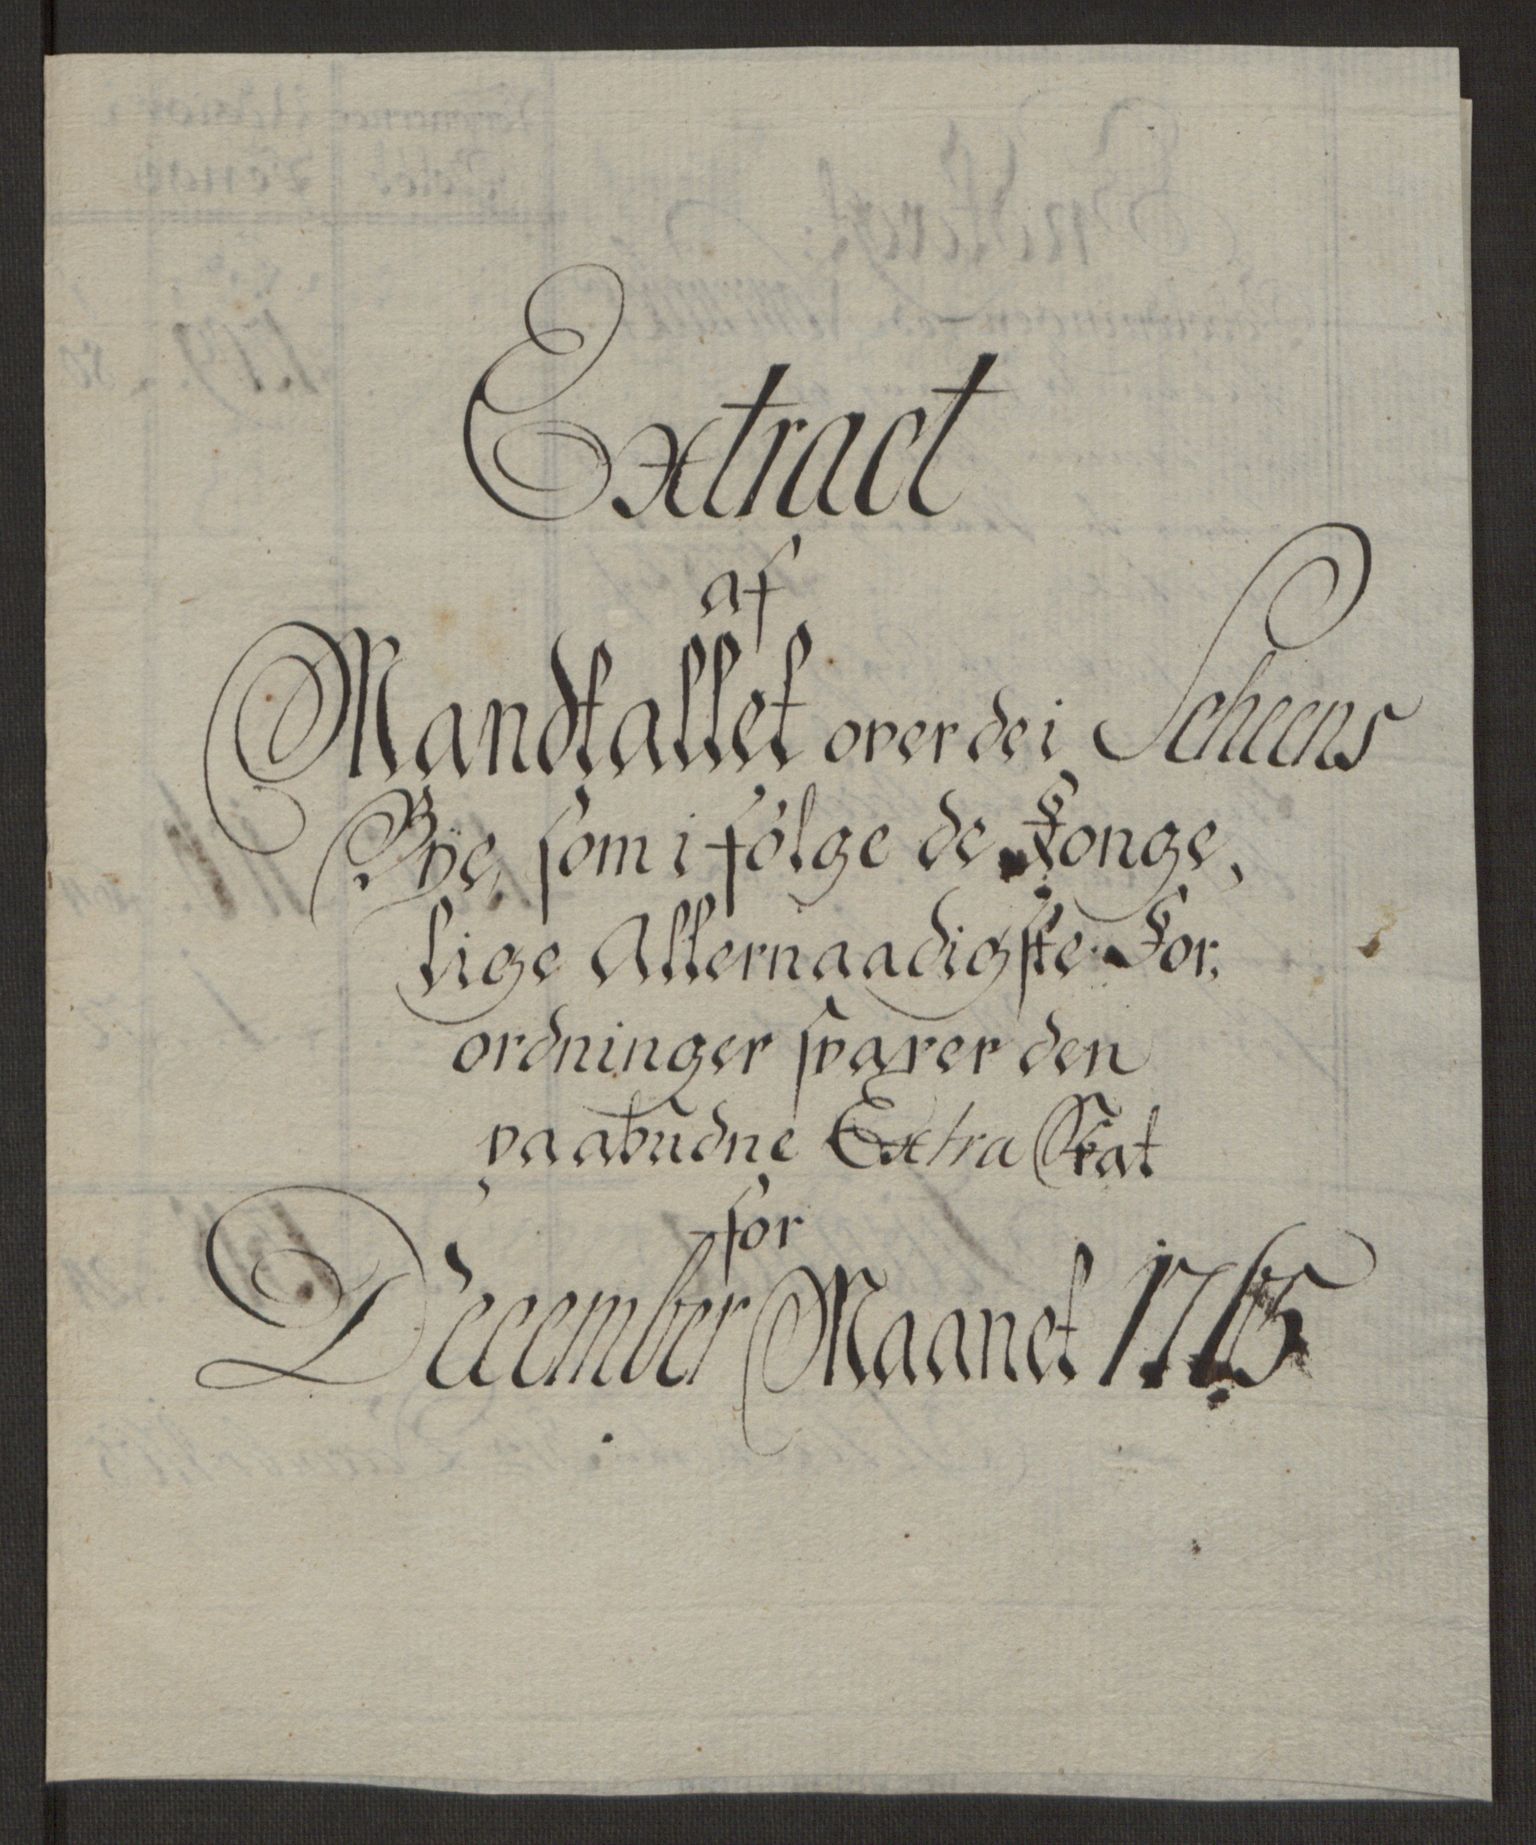 Extract
af
Mandtallet over de i Scheens
Bÿe, som i følge de Konge,
lige Allernaadigste For,
ordninger svarer den
paabudne Extra Skat
for
December Maanet 1765